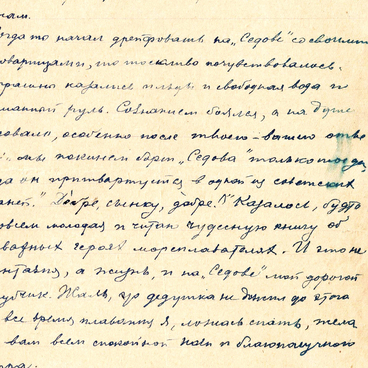 нам.
огда то начал дрейфовать на „Седове" со своими
товарищами, то тоскливо почувствовалось.
трашны казались и льды и свободная вода и
манный руль. Сознанием боялся, а на душе
ковало, особенно после твоего-вашего отве
мы покинем борт „Седова" только тогда,
да он пришвартуется в одной из советских
аней." Добре, сынку, добре. Казалось, будто
овсем молодая и читаю чудесную книгу об
важных героях мореплавателях. И это не
нтазия, а жизнь, и на „Седове" мой дорогой
лубчик. Жаль, что дедушка не дожил до этого
все время плавания я, ложась спать, жела
вам всем спокойной ночи и благополучного